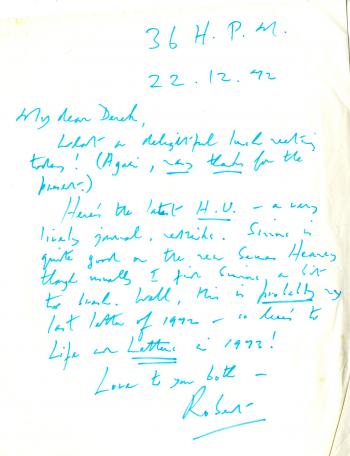 36 H. P. M.
22.12.92
My dear Derek,
What a delightful lunch meeting
today! (Again, very thanks for the
present.)
Here's the latest H.U. – a very
lively journal,
quite good on the new Seamus Heaney
though usually I find a bit
too much. Well, this is probably my
last letter of 1992 – so here's to
Life and Letters in 1993!
Love to you both –
Robert